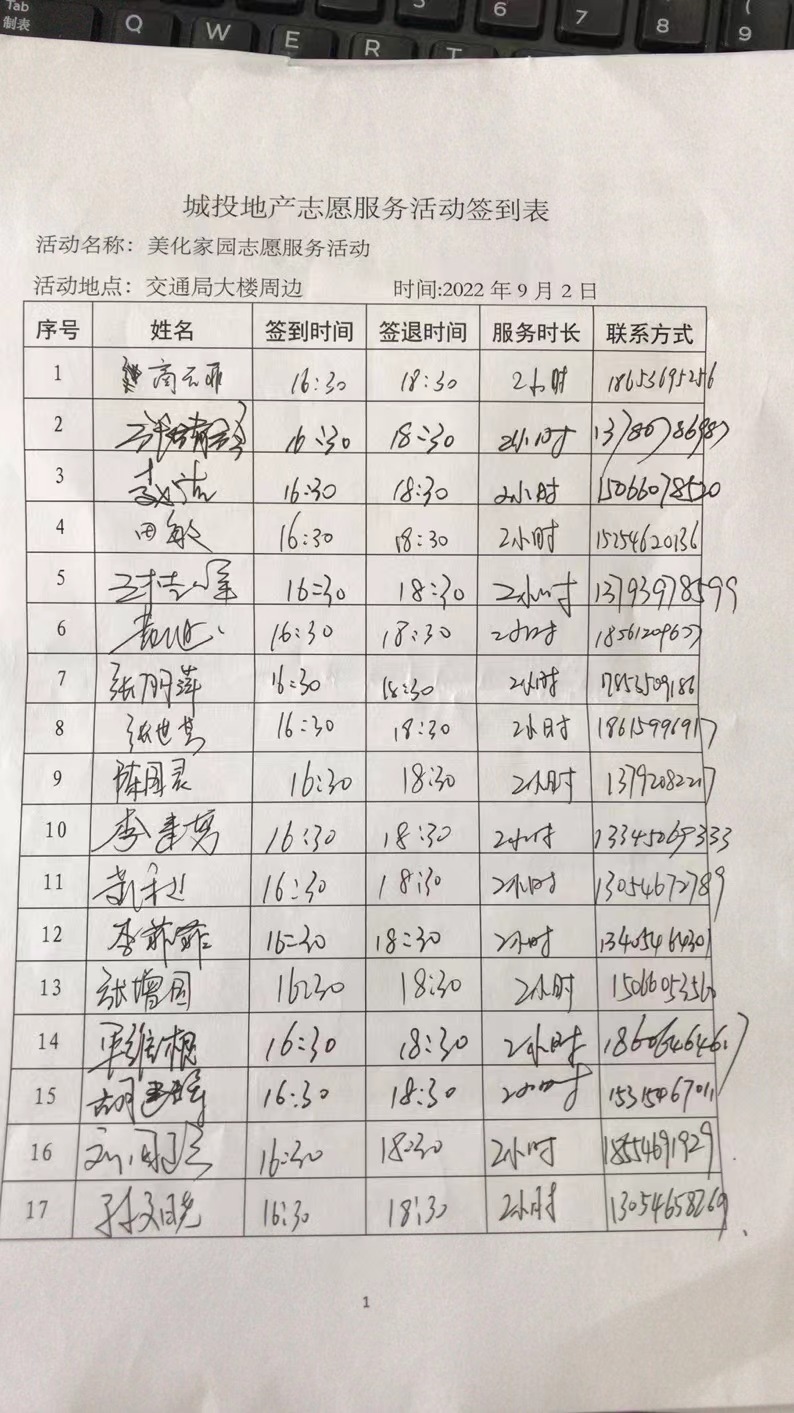 Tab
制表
Q
W
E
R
T
6
7
8
9
城投地产志愿服务活动签到表
活动名称：美化家园志愿服务活动
活动地点：交通局大楼周边 时间:2022 年 9 月 2 日
序号 姓名 签到时间 签退时间 服务时长 联系方式
1 16:30 18:30 2小时 18653695256
2 16:30 18:30 2小时
3 16:30 18:30 2小时 15066078520
4 田敏 16:30 18:30 2小时 15254620136
5 16:30 18:30 2小时 13793978599
6 16:30 18:30 2小时
7 张丽萍 16:30 18:30 2小时
8 张世英 16:30 18:30 2小时 18615996917
9 陈国灵 16:30 18:30 2小时 13792082217
10 16:30 18:30 2小时 13345069333
11 16:30 18:30 2小时 13054672789
12 李菲菲 16:30 18:30 2小时 13405464301
13 张增国 16:30 18:30 2小时
14 16:30 18:30 2小时
15 16:30 18:30 2小时 15315467011
16 16:30 18:30 2小时 18554691929
17 孙文晓 16:30 18:30 2小时 13054658269
1